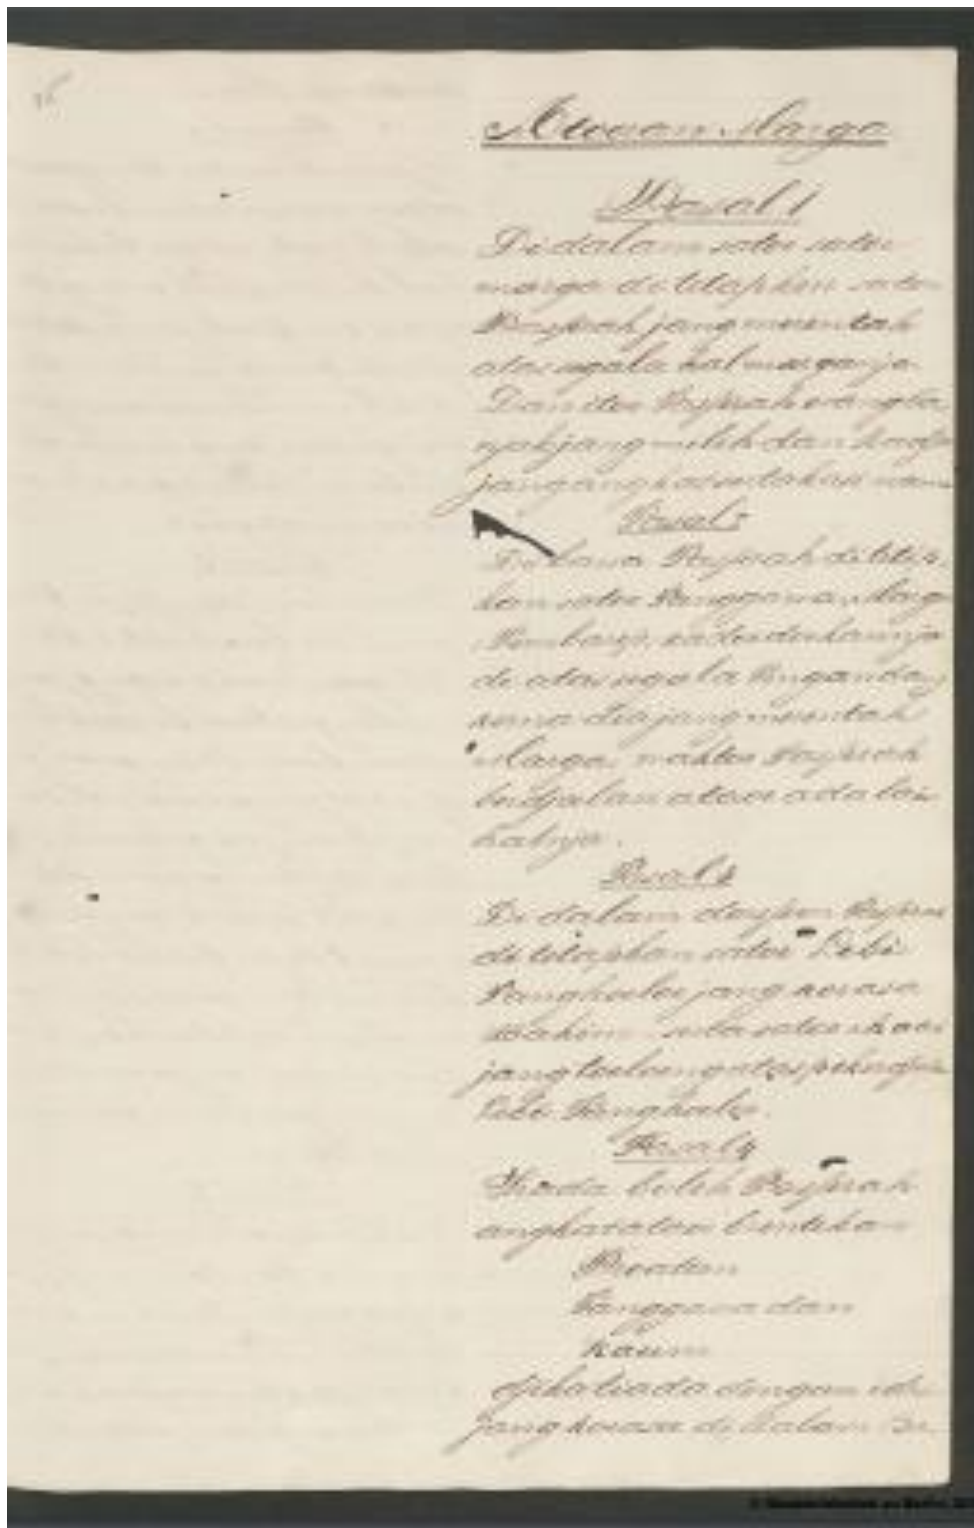 Atoeran Marga
Pasal 1
Di dalam satoe satoe
marga di tetapken satoe
Passirah jang merentah
atas segala hal marganja.
Dan itoe Passirah orang ba
njak jang milih dan Radja
jang angkat
Pasal 2
Di bawa Passirah di tetap
kan satoe Panggawa Marga
Pembarap,
di atas segala
karna dia jang merentah
Marga, waktoe Passirah
berdjalan atawa ada lain
halnja.
Pasal 3
Di dalam doesoen Passirah
di tetapkan satoe Lebi
Panghoeloe jang koeasa
Hakim serta satoe
jang toeloeng atas pekerdjaan
Lebi Panghoeloe.
Pasal 4
Tiada boleh Passirah
angkat atau brentikan
Proatin
Panggawa dan
Kaum
djika tiada dengan idin
jang koeasa di dalam